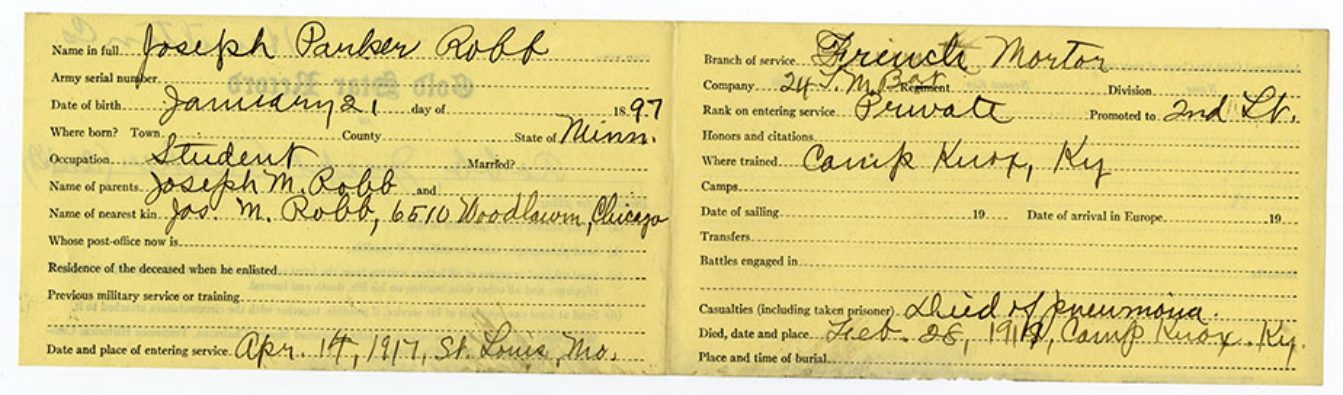 Name in full Joseph Parker Robb
Army serial number
Date of birth January 21 day of 1897
Where born? Town County State of Minn.
Occupation Student Married?
Name of parents Joseph M. Robb and
Name of nearest kin Jos. M. Robb, 6510 Woodlawn, Chicago
Whose post-office now is
Residence of the deceased when he enlisted
Previous military service or training
Date and place of entering service Apr. 14, 1917, St. Louis, Mo.
Branch of service Trench Mortor
Company 24 T. M. Bat Regiment Division
Rank on entering service Private Promoted to 2nd Lt.
Honors and citations
Where trained Camp Knox, Ky
Camps
Date of sailing 19 Date of arrival in Europe 19
Transfers
Battles engaged in
Casualties (including taken prisoner) Died of pneumonia.
Died, date and place Feb. 28, 1919, Camp Knox. Ky.
Place and time of burial
Gold Star Record